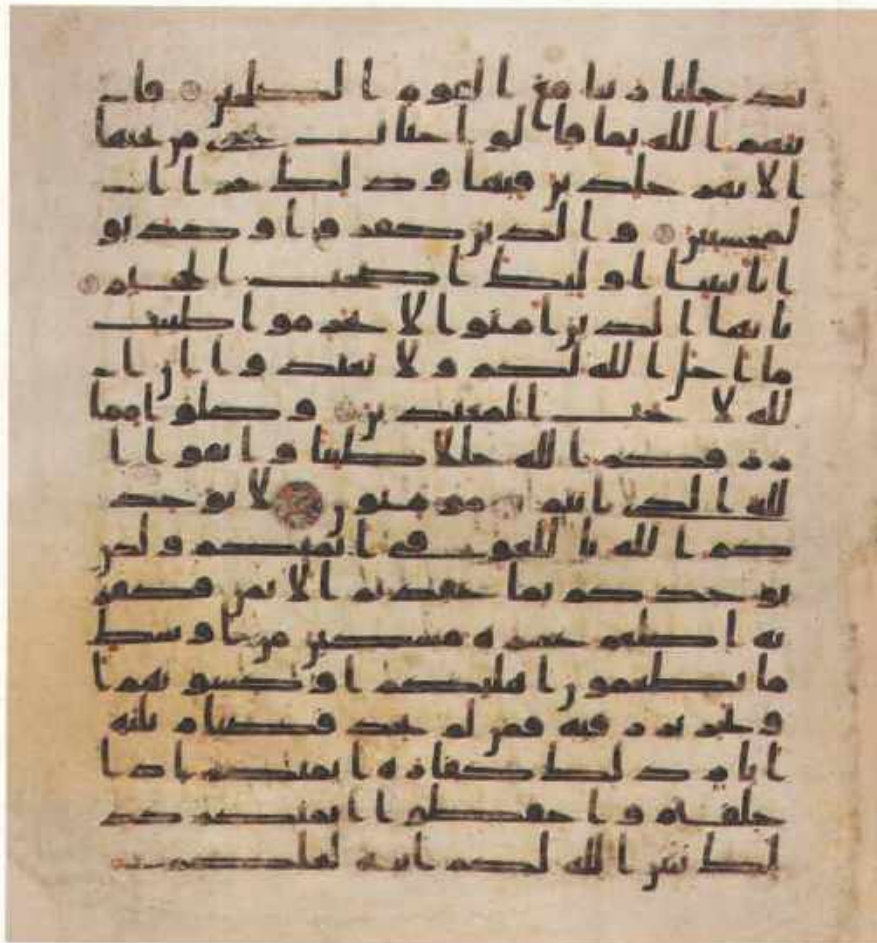 يدخلنا ربنا مع القوم الصلحين فا
ثبهم الله بما قالوا جنات تجرى من تحتها
الانهر خلدين فيها وذلك جزا ا
لمحسنين والذين كفروا وكذبو
ا باياتنا اوليك اصحب الجحيم
يايها الذين امنوا لا تحرموا طيبت
ما احل الله لكم ولا تعتدوا ان ا
لله لا يحب المعتدين وكلوا مما
رزقكم الله حللا طيبا واتقوا ا
لله الذى انتم به مومنون لا يوخذ
كم الله باللغو فى ايمنكم ولكن
يوخذكم بما عقدتم الايمن فكفر
ته اطعم عشرة مسكين من اوسط
ما تطعمون اهليكم او كسوتهم ا
و تحرير رقبة فمن لم يجد فصيام ثلثة
ايام ذلك كفارة ايمنكم اذا
حلفتم واحفظوا ايمنكم كذ
لك يبين الله لكم ايته لعلكم ت